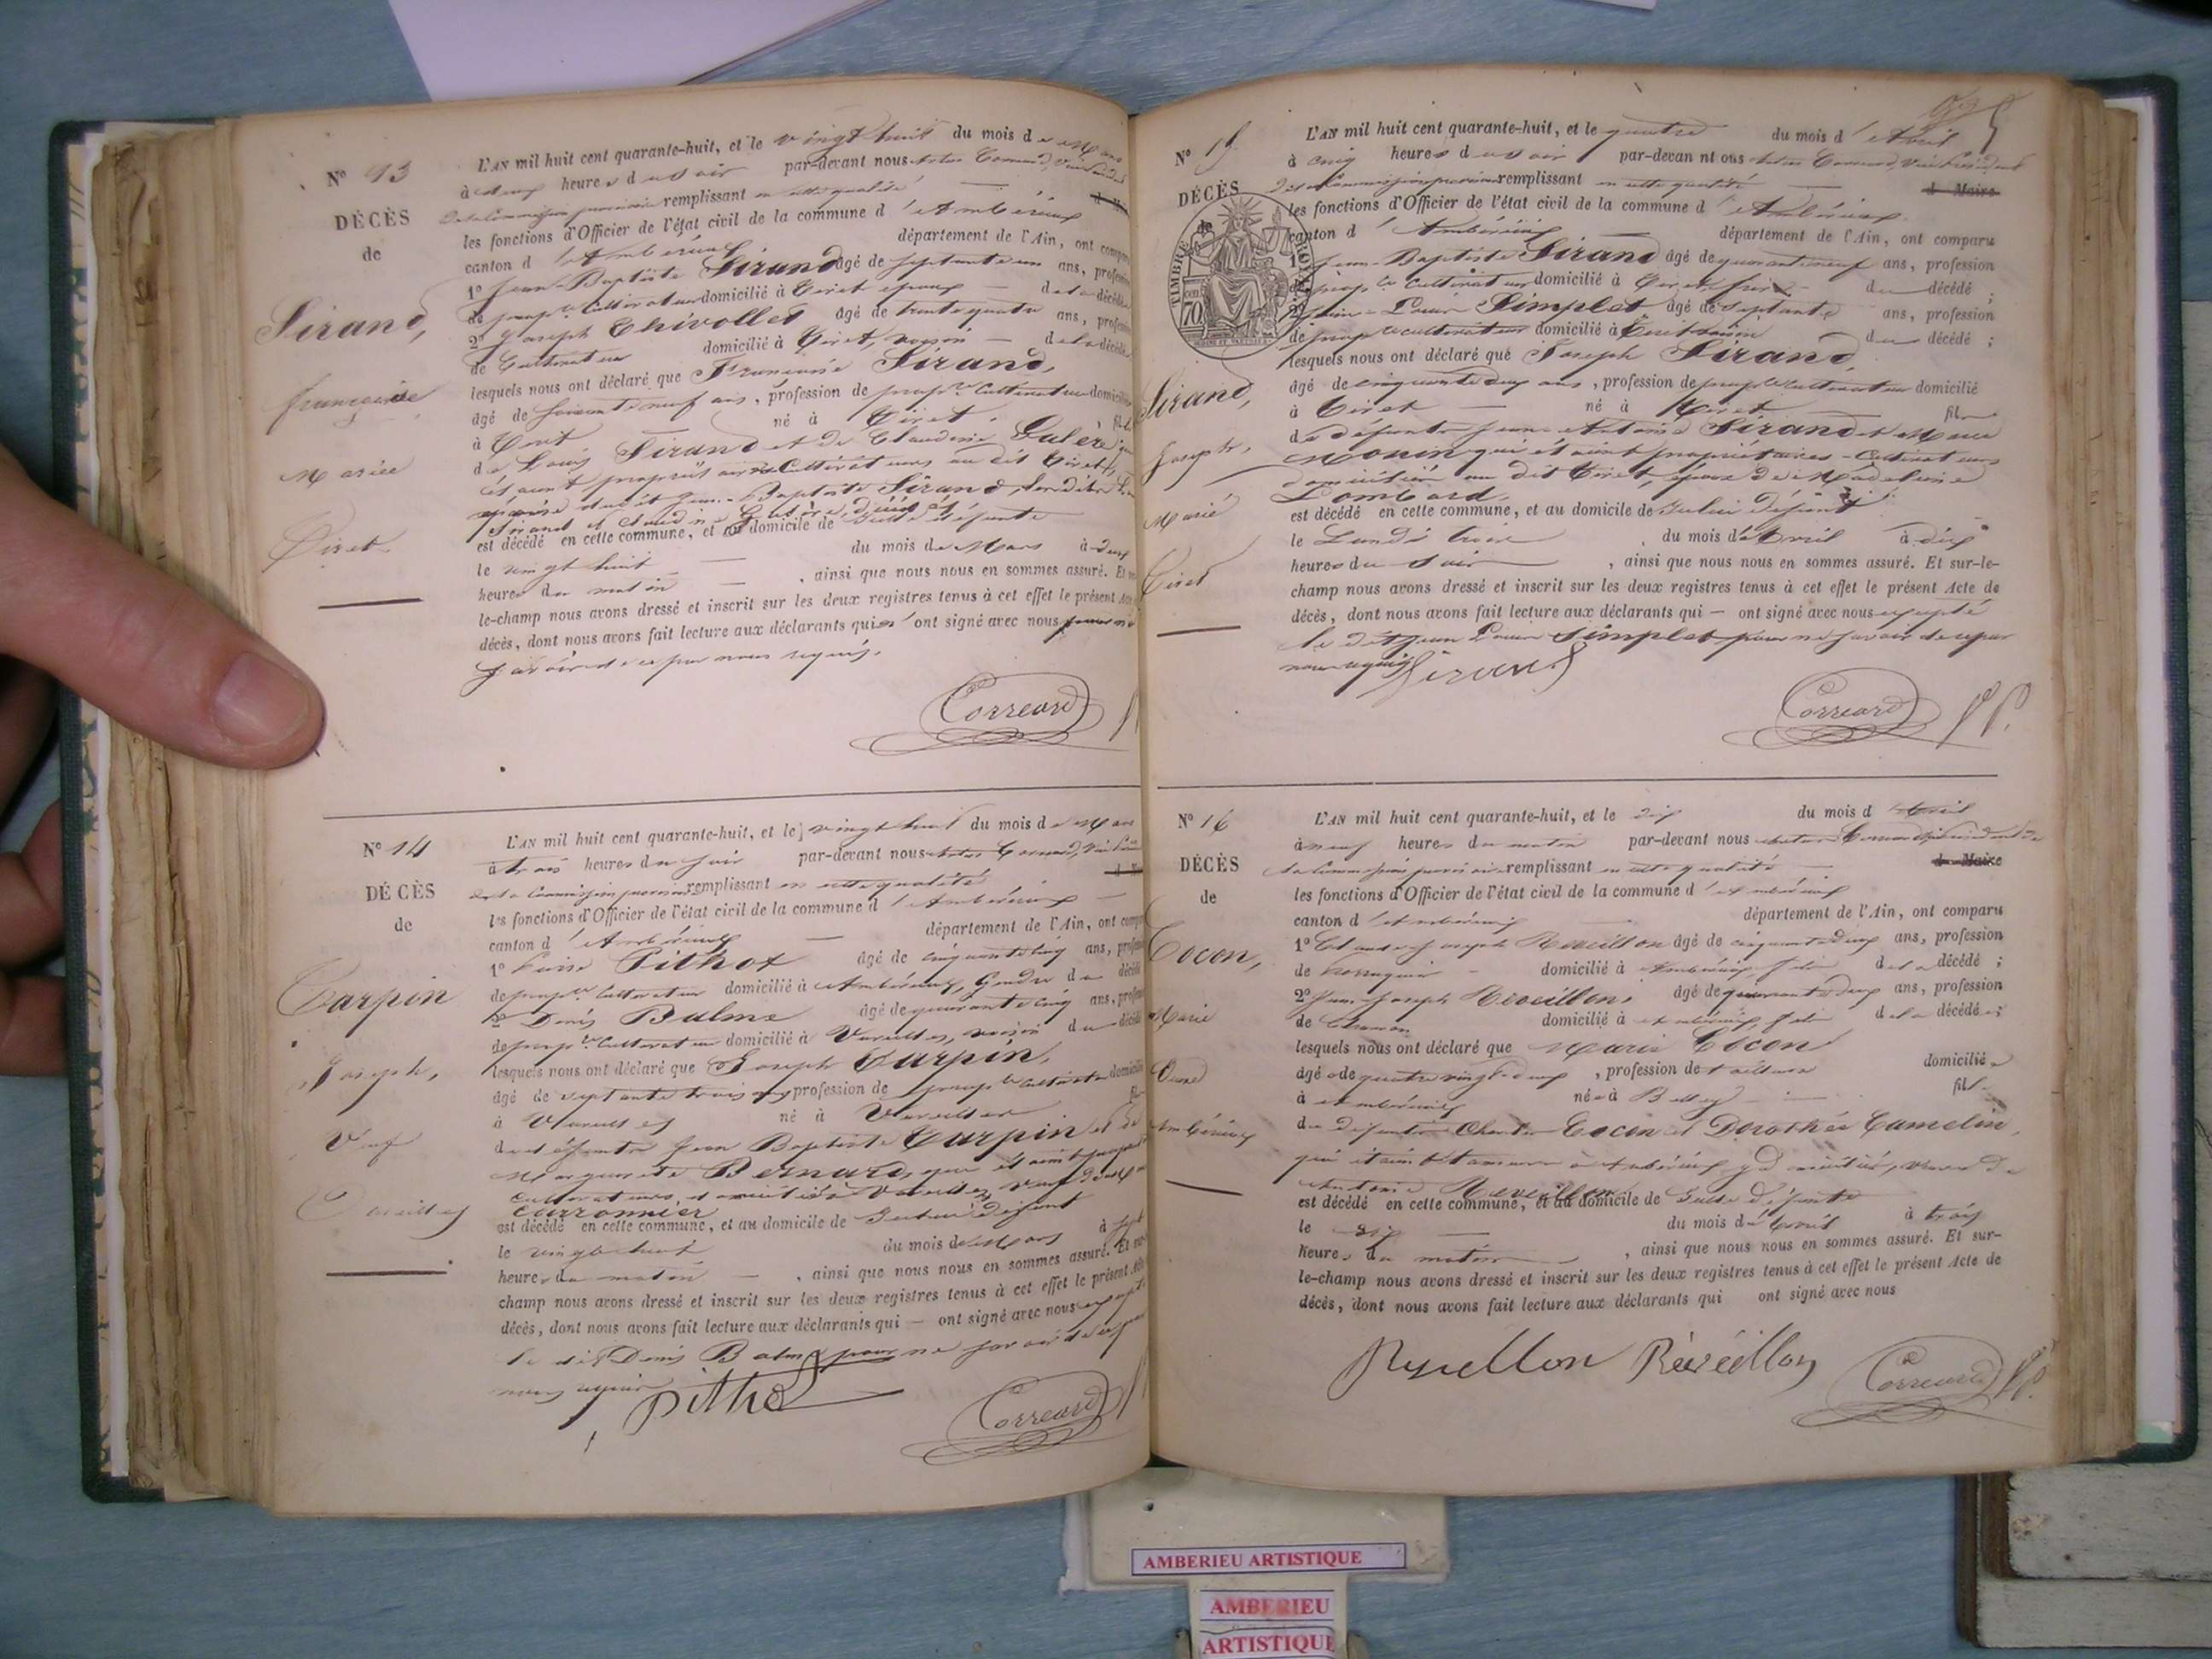 N° 13
DÉCÈS
de
Sirand,
françoise
Mariée
Tiret.
L'AN mil huit cent quarante-huit, et le vingt huit du mois de Mars
à deux heures du soir par-devant nous
de la Commission provisoire remplissant en cette qualité
les fonctions d'Officier de l'état civil de la commune d'Ambérieux
canton d'Ambérieux département de l'Ain, ont comparu
1° Jean-Baptiste Sirand âgé de septante un ans, profession
de prop.re Cultivateur domicilié à Tiret époux de la décédée
2° Joseph Chivollet âgé de trente quatre ans, profession
de Cultivateur domicilié à Tiret, voisin de la décédée
lesquels nous ont déclaré que Françoise Sirand,
âgé de soixante neuf ans, profession de prop.re Cultivateur domiciliée
à Tiret né à Tiret. fille
de Louis Sirand et de Claudine Gulère qui
étaient propriétaires Cultivateurs au dit Tiret,
épouse du dit Jean-Baptiste Sirand,
Sirand et Claudine Gulère,
est décédé en cette commune, et au domicile de ladite défunte
le vingt huit du mois de Mars à deux
heures du matin, ainsi que nous nous en sommes assuré. Et sur
le-champ nous avons dressé et inscrit sur les deux registres tenus à cet effet le présent Acte
décès, dont nous avons fait lecture aux déclarants qui n'ont signé avec nous pour ne
savoir de ce par nous requis.
Correard
N° 14
DÉCÈS
de
Carpin
Joseph,
Veuf
Vareilles
L'AN mil huit cent quarante-huit, et le vingt huit du mois de Mars
à trois heures du soir par-devant nous
de la Commission provisoire remplissant en cette qualité
les fonctions d'Officier de l'état civil de la commune d'Ambérieux
canton d'Ambérieux département de l'Ain, ont comparu
1° Pithot âgé de cinquante cinq ans, profession
de prop.re Cultivateur domicilié à Ambérieux, Gendre du décédé
2° Denis Balme âgé de quarante cinq ans, profession
de prop.re Cultivateur domicilié à Vareilles, voisin du décédé
lesquels nous ont déclaré que Joseph Carpin,
âgé de septante trois ans profession de prop.re Cultivateur domicilié
à Vareilles né à Vareilles fils
de défunts Jean Baptiste Carpin et de
Marguerite Bernard, qui étaient
Cultivateurs, domiciliés à Vareilles, Veuf de
Carronnier
est décédé en cette commune, et au domicile de du dit défunt
le vingt huit du mois de Mars à sept
heures du matin, ainsi que nous nous en sommes assuré. Et sur-le-
champ nous avons dressé et inscrit sur les deux registres tenus à cet effet le présent Acte
décès, dont nous avons fait lecture aux déclarants qui — ont signé avec nous excepté
le dit Denis Balme pour ne savoir de ce par
nous requis
Pithot
Correard
N° 15
DÉCÈS
de
TIMBRE ROYAL
70
Sirand,
Joseph,
Marié
Tiret
L'AN mil huit cent quarante-huit, et le quatre du mois d'Avril
à cinq heures du soir par-devan nt ous
de la Commission provisoire remplissant en cette qualité d Maire
les fonctions d'Officier de l'état civil de la commune d'Ambérieux
canton d'Ambérieux département de l'Ain, ont comparu
1° Jean-Baptiste Sirand âgé de quarante neuf ans, profession
de prop.re Cultivateur domicilié à Tiret, frère du décédé ;
2° Jean-Louis Simplet âgé de septante ans, profession
de prop.re cultivateur domicilié à Tiret voisin du décédé ;
lesquels nous ont déclaré que Joseph Sirand,
âgé de cinquante deux ans, profession de prop.re cultivateur domicilié
à Tiret né à Tiret fils
de défunts Jean-Antoine Sirand et Marie
Monin qui étaient propriétaires-Cultivateurs
domiciliés au dit Tiret, époux de Madeleine
Lombard,
est décédé en cette commune, et au domicile de du défunt
le Lundi trois du mois d'Avril à dix
heures du soir, ainsi que nous nous en sommes assuré. Et sur-le-
champ nous avons dressé et inscrit sur les deux registres tenus à cet effet le présent Acte de
décès, dont nous avons fait lecture aux déclarants qui — ont signé avec nous excepté
le dit Jean Louis Simplet pour ne savoir de ce par
nous requis
Sirand
Correard
N° 16
DÉCÈS
de
Cocon,
Marie
Veuve
Ambérieux
L'AN mil huit cent quarante-huit, et le dix du mois d'Avril
à neuf heures du matin par-devant nous
la Commission provisoire remplissant en cette qualité d Maire
les fonctions d'Officier de l'état civil de la commune d'Ambérieux
canton d'Ambérieux département de l'Ain, ont comparu
1° Claude Joseph Reveillon âgé de cinquante deux ans, profession
de perruquier domicilié à Ambérieux, fils de la décédé ;
2° Jean-Joseph Réveillon âgé de quarante deux ans, profession
de domicilié à Ambérieux, fils de la décédé ;
lesquels nous ont déclaré que Marie Cocon
âgé de quatre vingt deux, profession de tailleuse domiciliée
à Ambérieux née à Belley fille
de défunts Charles Cocon et Dorothée Camelin,
qui étaient à Ambérieux y domiciliés, veuve de
Antoine Reveillon
est décédé en cette commune, et au domicile de ladite défunte
le dix du mois d'Avril à trois
heures du matin, ainsi que nous nous en sommes assuré. Et sur-
le-champ nous avons dressé et inscrit sur les deux registres tenus à cet effet le présent Acte de
décès, dont nous avons fait lecture aux déclarants qui ont signé avec nous
Reveillon Réveillon
Correard
AMBERIEU ARTISTIQUE
AMBERIEU
ARTISTIQUE